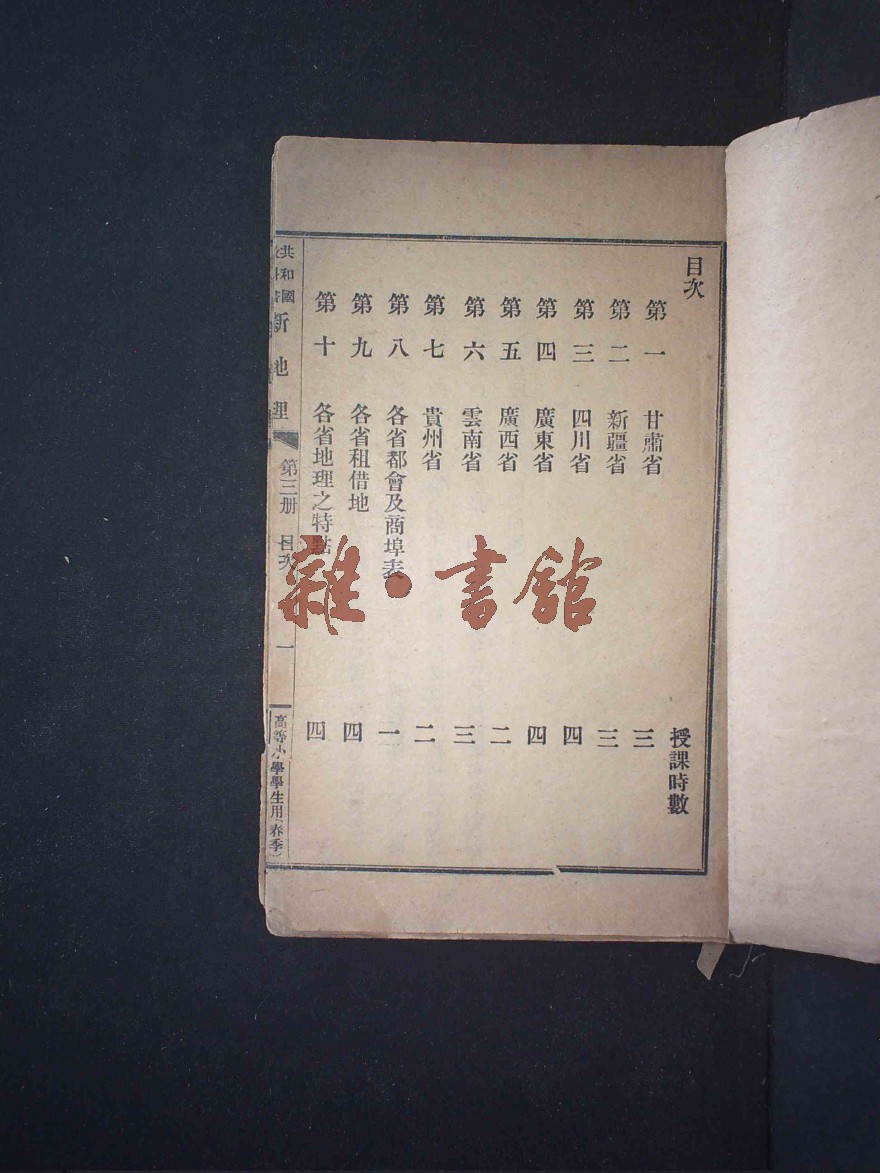 目次
授課時數
第一 甘肅省 三
第二 新疆省 三
第三 四川省 四
第四 廣東省 四
第五 廣西省 二
第六 雲南省 三
第七 貴州省 二
第八 各省都會及商埠表 一
第九 各省租借地 四
第十 各省地理之特點 四
共和國
新地理 第三册 目次 一
高等小學學生用(春季)
雜·書館